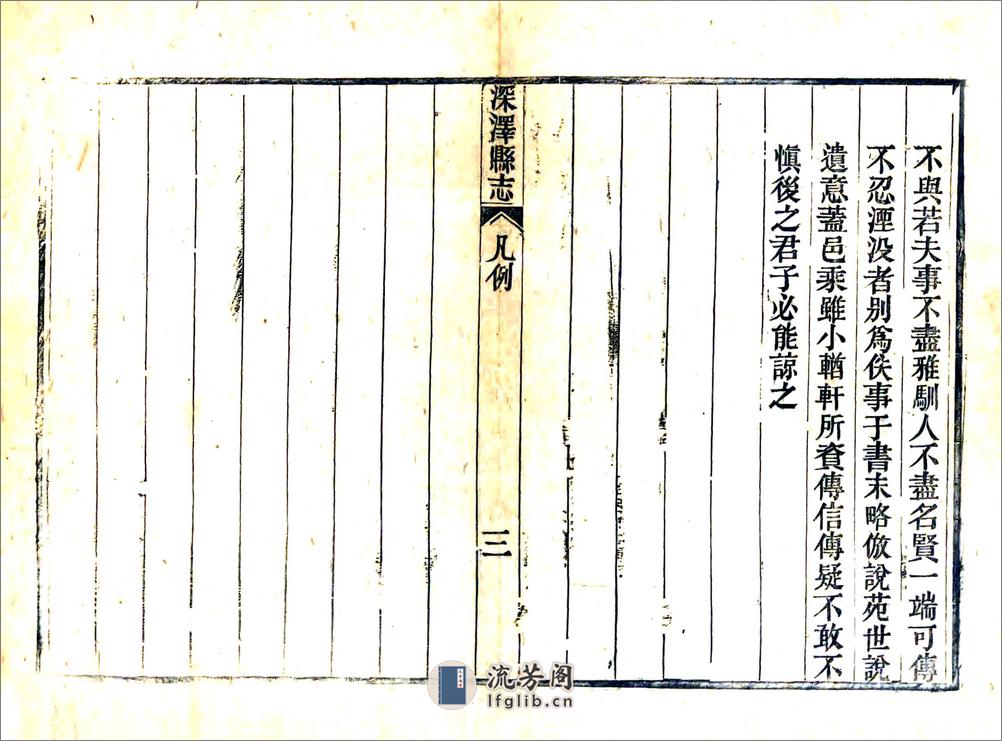 不與若夫事不盡雅馴人不盡名賢一端可傳
不忍湮没者別爲佚事于書末略倣說苑世說
遺意蓋邑乘雖小輶軒所資傳信傳疑不敢不
愼後之君子必能諒之
深澤縣志
凡例
三
流芳阁
lfglib.cn